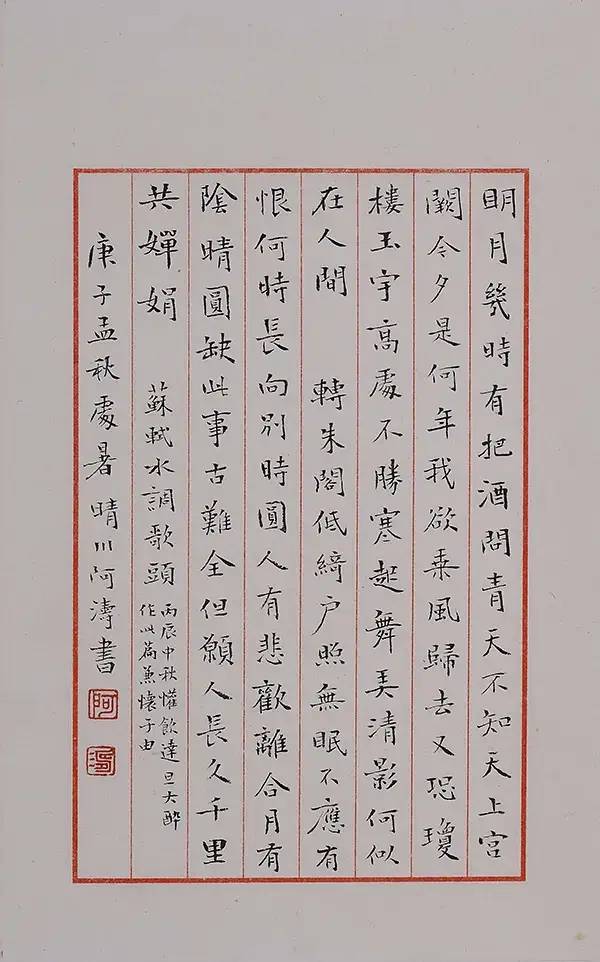 明月幾時有把酒問青天不知天上宮
闕今夕是何年我欲乗風歸去又恐瓊
樓玉宇高處不勝寒起舞弄清影何似
在人間 轉朱閣低綺户照無眠不應有
恨何時長向別時圓人有悲歡離合月有
陰晴圓缺此事古難全但願人長久千里
共嬋娟 蘇軾水調歌頭
丙辰中秋懽飲達旦大醉
作此篇兼懷子由
庚子孟秋處暑晴川阿濤書
阿
濤